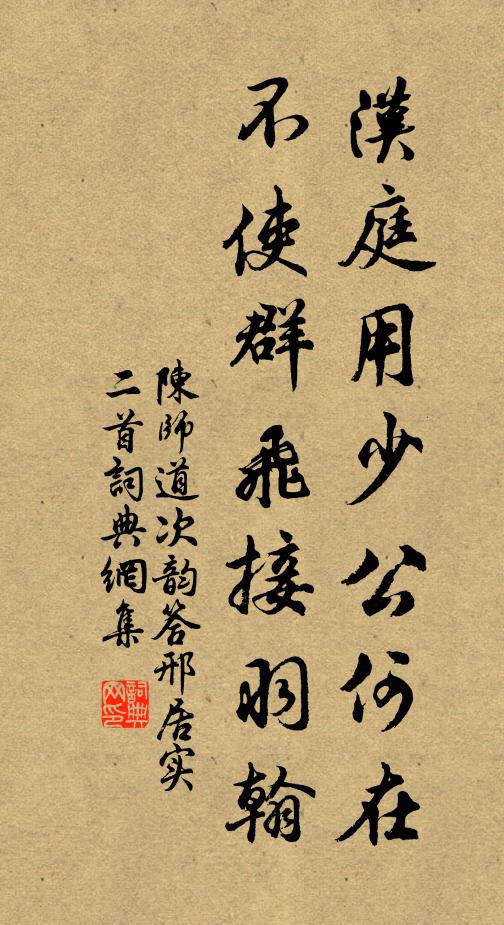 漢庭用少公何在
不使群飛接羽翰
陳師道次韵答邢居实
二首詞典網集
詞典网印